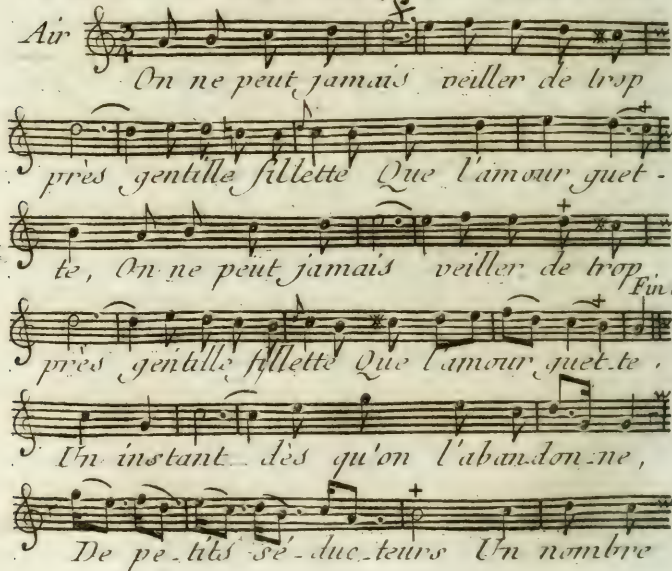 Air
On ne peut jamais veiller de trop
près gentille fillette Que l'amour guet-
te, On ne peut jamais veiller de trop
Fin
près gentille fillette Que l'amour guet-te.
Un instant dès qu'on l'aban-don-ne,
De pe-tits sé-duc-teurs Un nombre